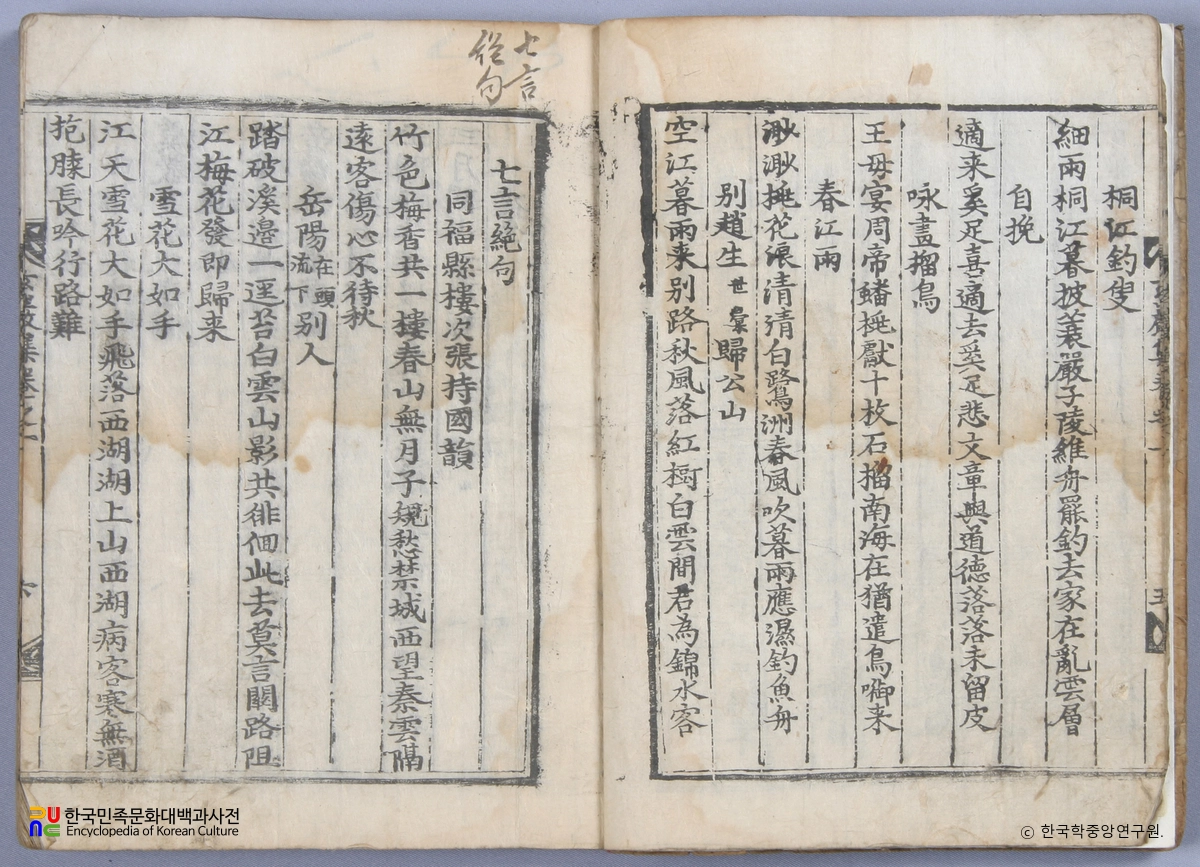 桐江釣叟
細雨桐江暮披蓑嚴子陵維舟罷釣去家在亂雲層
自挽
適来奚足喜適去奚足悲文章與道德落落未留皮
咏畫榴鳥
王母宴周帝蟠桃獻十枚石榴南海在猶遣鳥啣来
春江雨
渺渺桃花浪清清白鷺洲春風吹暮雨應濕釣魚舟
別趙生世㒹歸公山
空江暮雨来別路秋風落紅樹白雲間君為錦水客
七言絶句
七言絶句
同福縣樓次張持國韻
竹色梅香共一樓春山無月子規愁禁城西望秦雲隔
遠客傷心不待秋
岳陽在頭流下別人
踏破溪邊一逕苔白雲山影共徘佪此去莫言關路阻
江梅花發即歸来
雪花大如手
江天雪花大如手飛落西湖湖上山西湖病客寒無酒
抱膝長吟行路難
한국민족문화대백과사전
Encyclopedia of Korean Culture
© 한국학중앙연구원.